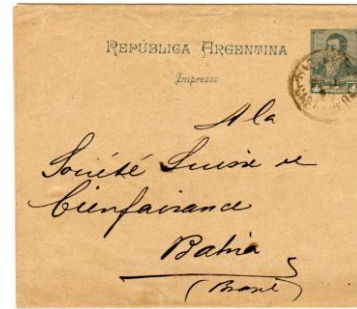 REPÚBLICA ARGENTINA
Impresos
A la
Société Suisse de
bienfaisance
Bahia
(Brésil)